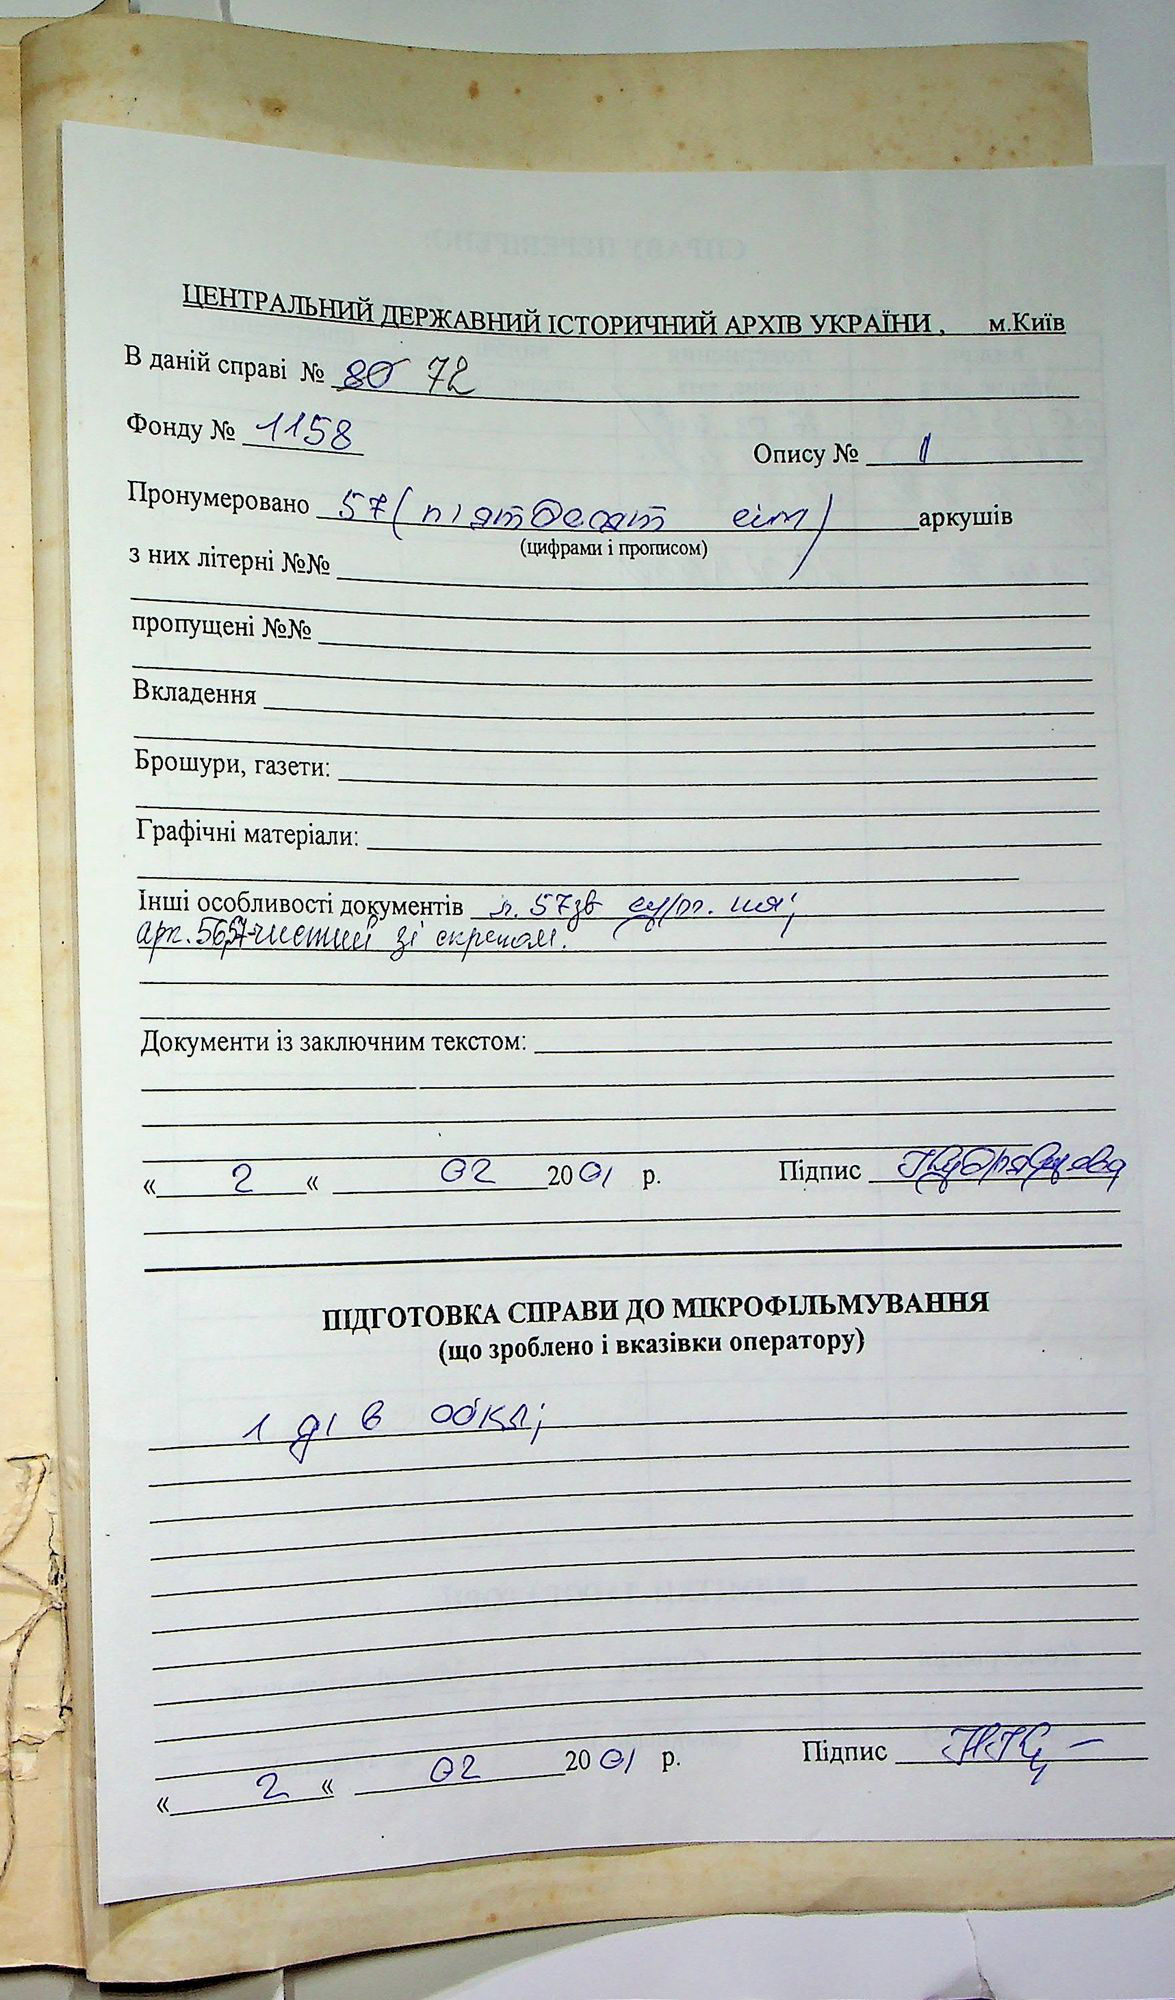 ЦЕНТРАЛЬНИЙ ДЕРЖАВНИЙ ІСТОРИЧНИЙ АРХІВ УКРАЇНИ, м.Київ
В даній справі № 80 72
Фонду № 1158 Опису № 1
Пронумеровано 57 (п'ятдесят сім) аркушів
(цифрами і прописом)
з них літерні №№
пропущені №№
Вкладення
Брошури, газети:
Графічні матеріали:
Інші особливості документів 57зв
арк. 56,57-чистий зі скрепом.
Документи із заключним текстом:
« 2 « 02 2001 р. Підпис
ПІДГОТОВКА СПРАВИ ДО МІКРОФІЛЬМУВАННЯ
(що зроблено і вказівки оператору)
1 ді в обкл;
« 2 « 02 2001 р. Підпис